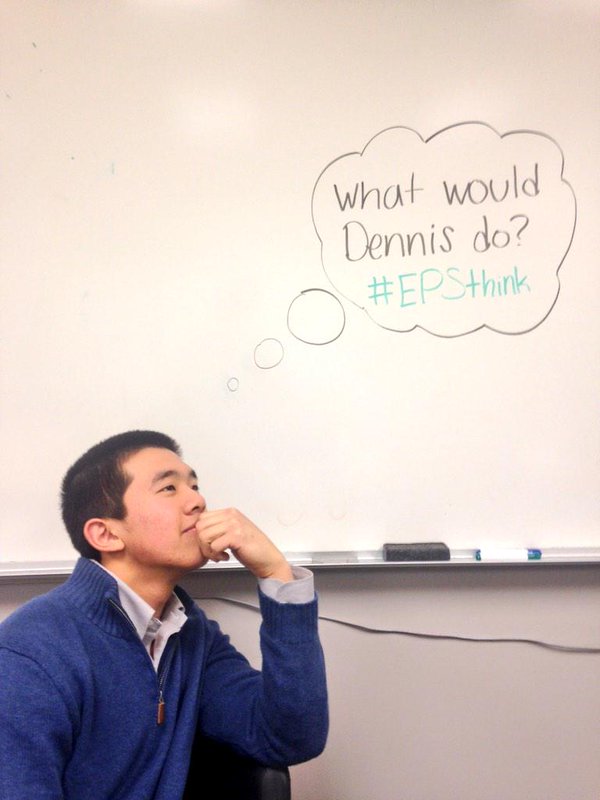 What would
Dennis do?
#EPSthink